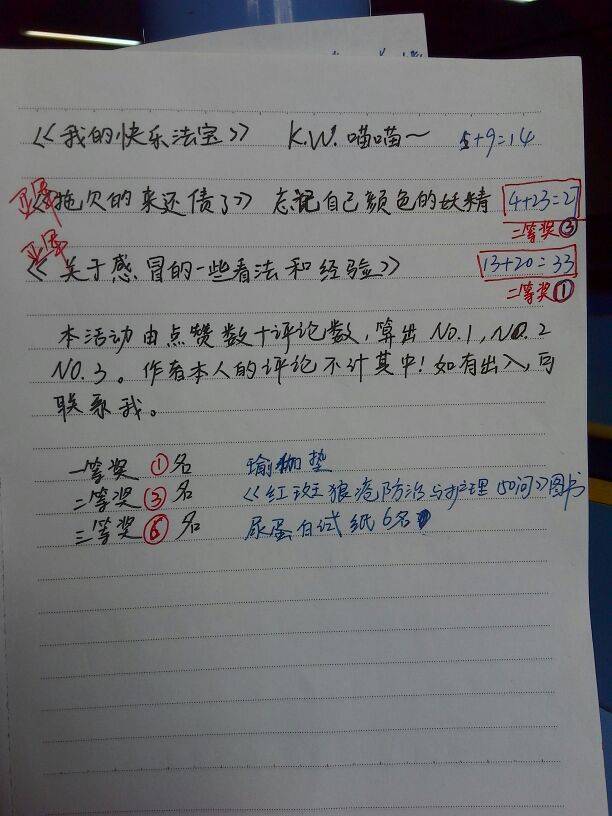 《我的快乐法宝》 K.W.喵喵～ 5+9=14
亚军
《拖欠的来还债了》 忘记自己颜色的妖精 4+23=27
二等奖③
亚军
《关于感冒的一些看法和经验》 13+20=33
二等奖①
本活动由点赞数十评论数,算出 NO.1,NO.2
NO.3。作者本人的评论不计其中!如有出入,可
联系我。
一等奖 ①名 瑜珈垫
二等奖 ③名 《红斑狼疮防治与护理150问》图书
三等奖 ⑥名 尿蛋白试纸6名